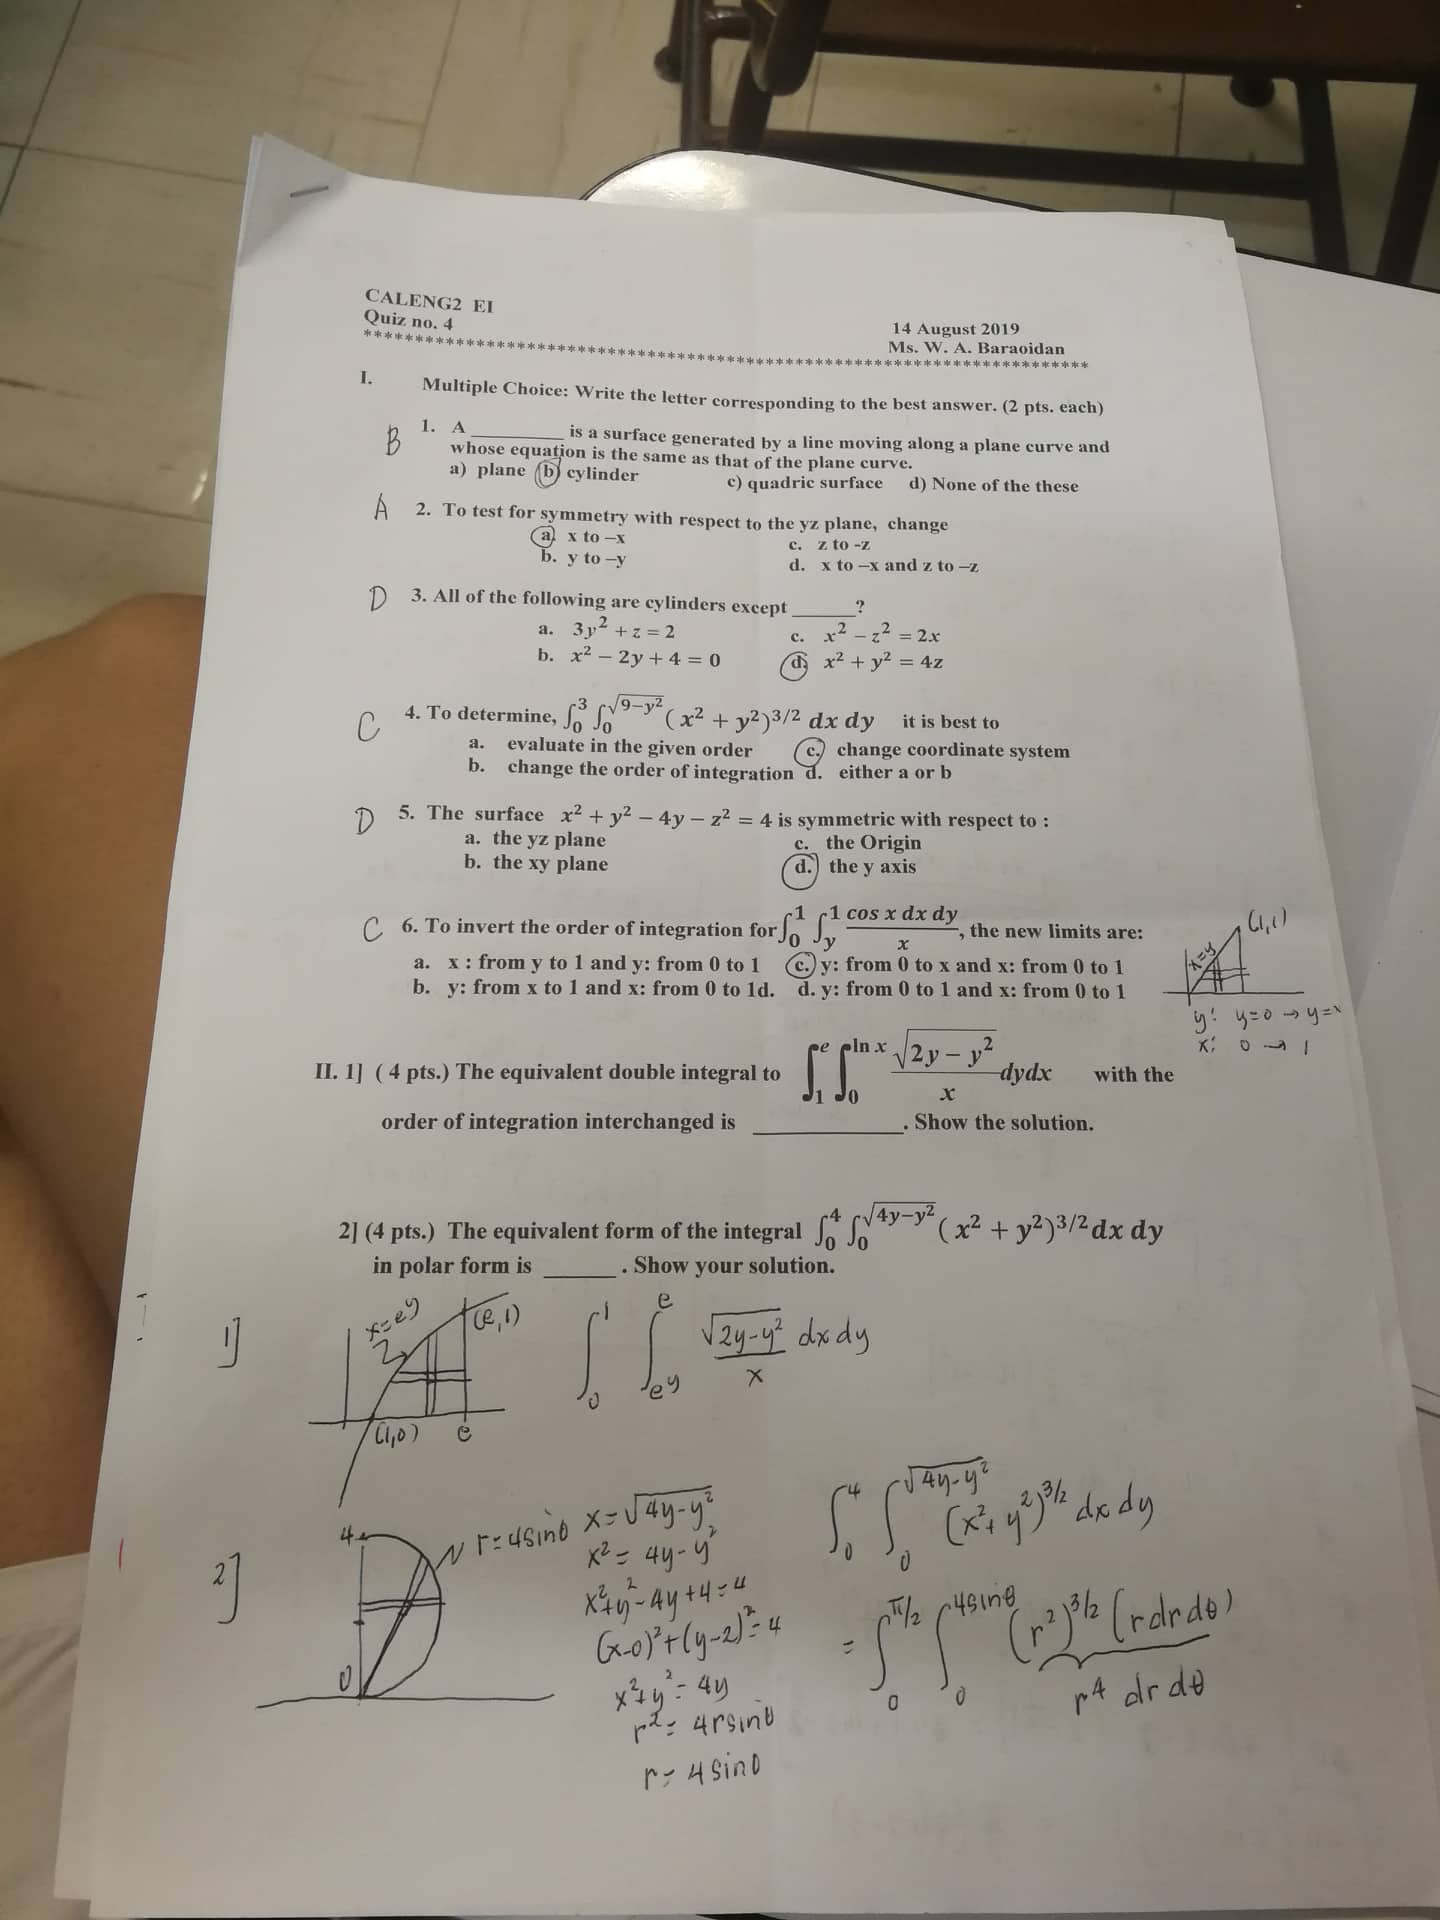 CALENG2 EI
Quiz no. 4
14 August 2019
Ms. W. A. Baraoidan
**********************************************************************
I. Multiple Choice: Write the letter corresponding to the best answer. (2 pts. each)
B 1. A __________ is a surface generated by a line moving along a plane curve and
whose equation is the same as that of the plane curve.
a) plane (b) cylinder c) quadric surface d) None of the these
A 2. To test for symmetry with respect to the yz plane, change
a. x to –x c. z to -z
b. y to –y d. x to –x and z to –z
D 3. All of the following are cylinders except ______?
a. 3y² + z = 2 c. x² – z² = 2x
b. x² – 2y + 4 = 0 d. x² + y² = 4z
C 4. To determine, ∫₀³ ∫₀^√(9–y²) (x² + y²)^3/2 dx dy it is best to
a. evaluate in the given order c. change coordinate system
b. change the order of integration d. either a or b
D 5. The surface x² + y² – 4y – z² = 4 is symmetric with respect to :
a. the yz plane c. the Origin
b. the xy plane d. the y axis
C 6. To invert the order of integration for ∫₀¹ ∫_y^1 cos x dx dy / x, the new limits are:
a. x : from y to 1 and y: from 0 to 1 c. y: from 0 to x and x: from 0 to 1
b. y: from x to 1 and x: from 0 to 1d. d. y: from 0 to 1 and x: from 0 to 1
(1,1)
x=y
y: y=0 → y=x
x: 0 → 1
II. 1] ( 4 pts.) The equivalent double integral to ∫₁^e ∫₀^ln x √(2y – y²) / x dydx with the
order of integration interchanged is ______________. Show the solution.
2] (4 pts.) The equivalent form of the integral ∫₀⁴ ∫₀^√(4y–y²) (x² + y²)^3/2 dx dy
in polar form is ______. Show your solution.
1]
x=e^y
(e,1)
(1,0) e
∫₀¹ ∫_e^y^e √(2y-y²) / x dx dy
2]
4
0
r=4sinθ
x=√(4y-y²)
x²= 4y-y²
x²+y²-4y+4=4
(x-0)²+(y-2)²=4
x²+y²=4y
r²= 4rsinθ
r= 4sinθ
∫₀⁴ ∫₀^√(4y-y²) (x²+y²)^3/2 dx dy
= ∫₀^π/2 ∫₀^4sinθ (r²)^3/2 (rdrdθ)
r⁴ dr dθ